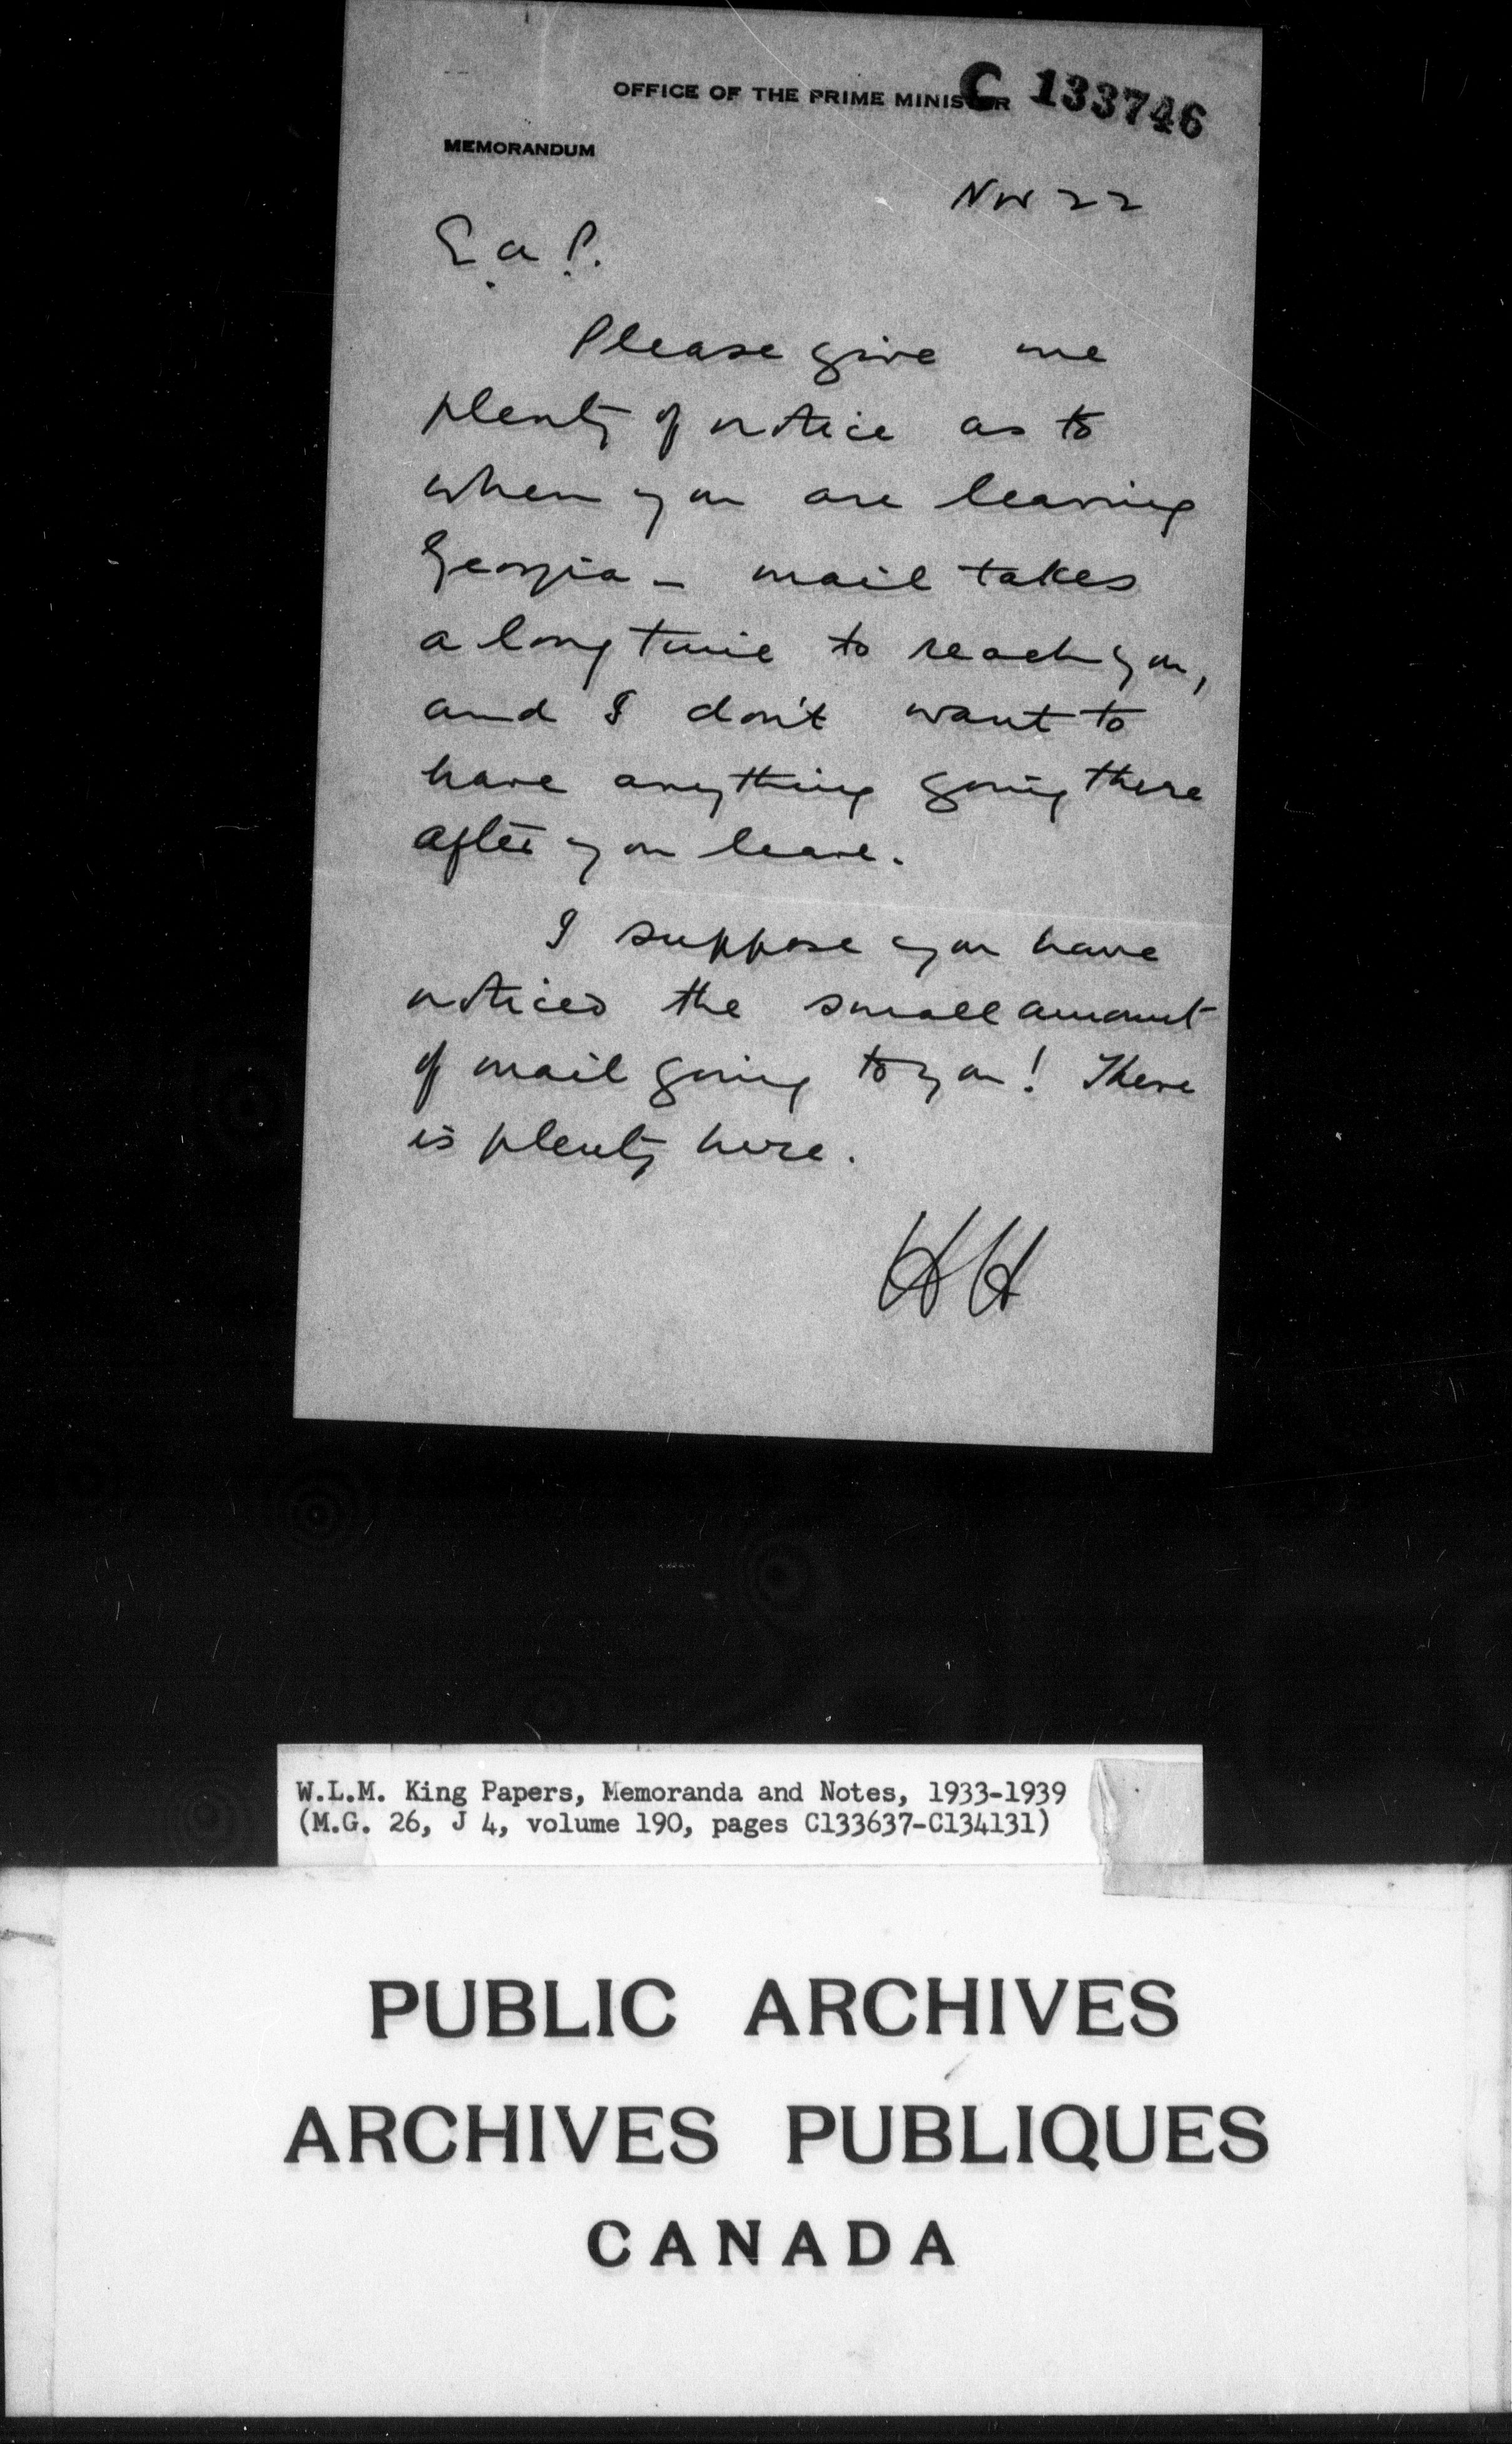 OFFICE OF THE PRIME MINISTER C 133746
MEMORANDUM
Nov 22
E.a.P.
Please give me
plenty of notice as to
when you are leaving
Georgia - mail takes
a long time to reach you,
and I don't want to
have anything going there
after you leave.
I suppose you have
noticed the small amount
of mail going to you! There
is plenty here.
HH
W.L.M. King Papers, Memoranda and Notes, 1933-1939
(M.G. 26, J 4, volume 190, pages C133637-C134131)
PUBLIC ARCHIVES
ARCHIVES PUBLIQUES
CANADA